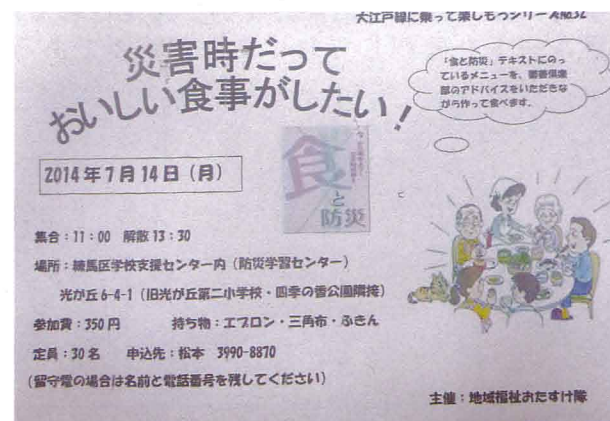 大江戸線に乗って楽しもうシリーズNo.32
災害時だって
おいしい食事がしたい！
「食と防災」テキストにのっ
ているメニューを、
部のアドバイスをいただきな
がら作って食べます。
2014年7月14日（月）
食
と
防災
集合：11：00　解散13：30
場所：練馬区学校支援センター内（防災学習センター）
光が丘6-4-1（旧光が丘第二小学校・四季の香公園隣接）
参加費：350円　持ち物：エプロン・三角布・ふきん
定員：30名　申込先：松本　3990-8870
（留守電の場合は名前と電話番号を残してください）
主催：地域福祉おたすけ隊